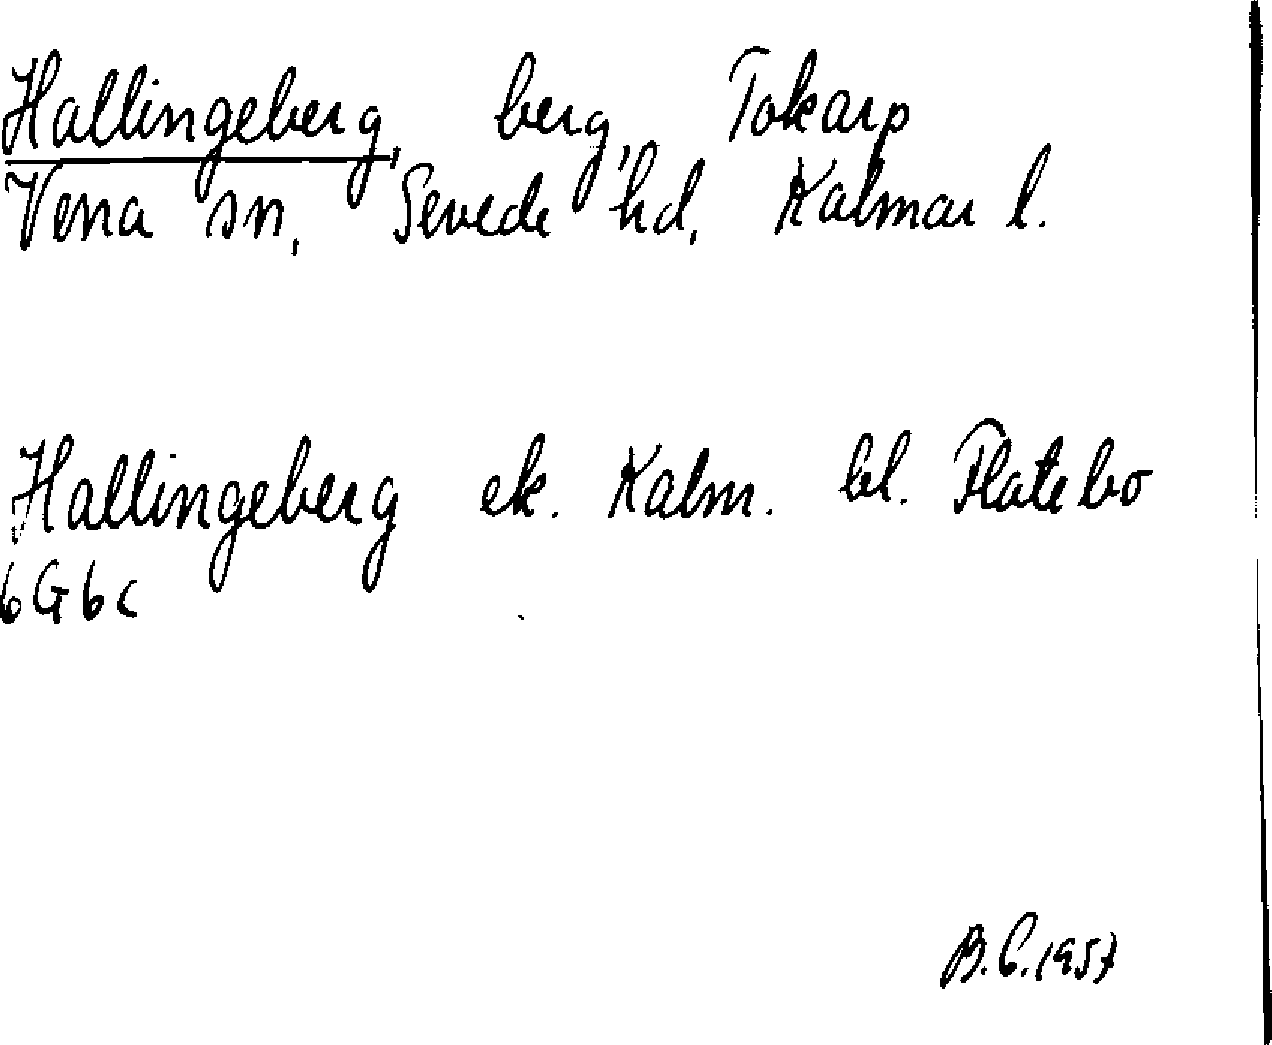 Hallingeberg, berg, Tokarp
Vena sn, Sevede hd, Kalmar l.
Hallingeberg ek. Kalm. bl. Flatebo
6G6c
B.C. 1957